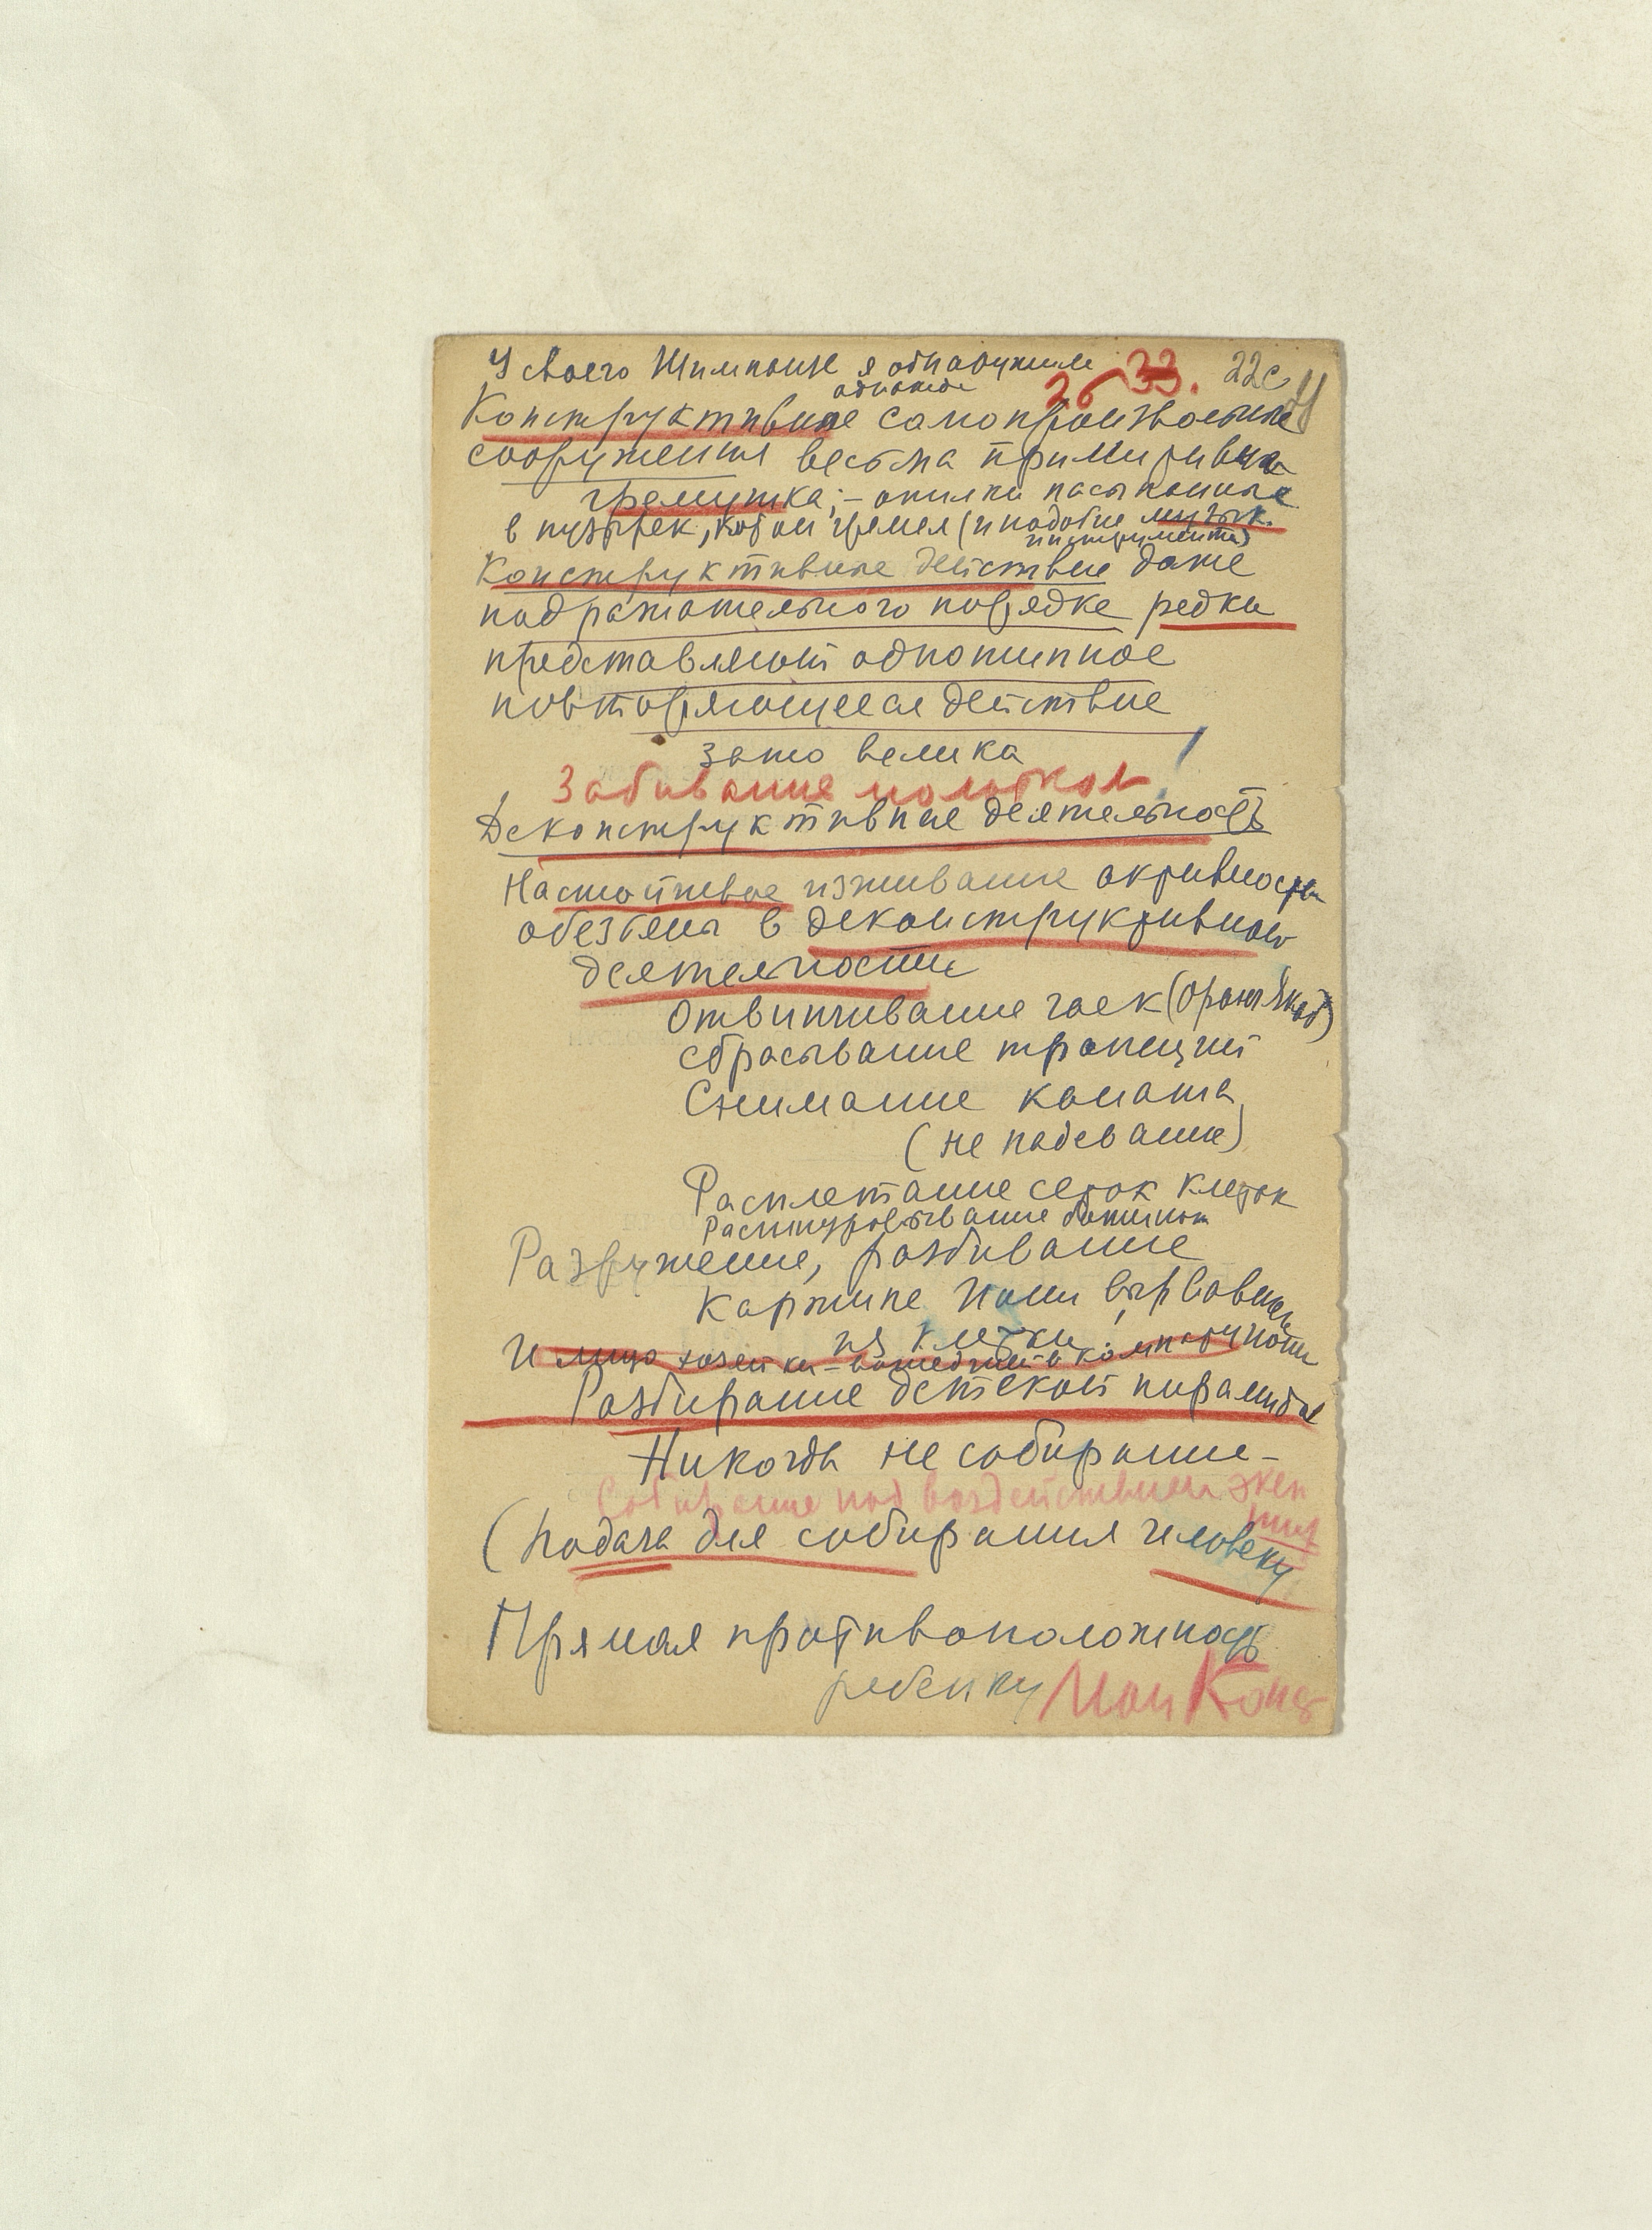 У своего Шимпанзе я обнаружила
26 33. 22с
однажды
Конструктивные самопроизвольные
сооружения весьма примитивны
гремушка; – опилки насыпанные
в пузырек, кот он гремел (и подобие музык.
инструмента)
Конструктивные действие даже
подражательного порядке редки
представляют однотипное
повторяющееся действие
зато велика
Забивание молотком
Деконструктивная деятельность
Настойчивое изживание активности
обезьяны в деконструктивной
деятельности
Отвинчивание гаек (Оранг
сбрасывание трапеций
Снимание каната
(не надевание)
Расплетание сеток клеток
Расшнуровывание ботинок
Разрушение, разбивание
Иони вырвавшись
из клетки
И лицо хозяйки – вошедшей в комнату
Разбирание детской пирамиды
Никогда не собирание –
Собирание под воздействием экс
(Подача для собирания человеку
Прямая противоположность
ребенку Иони